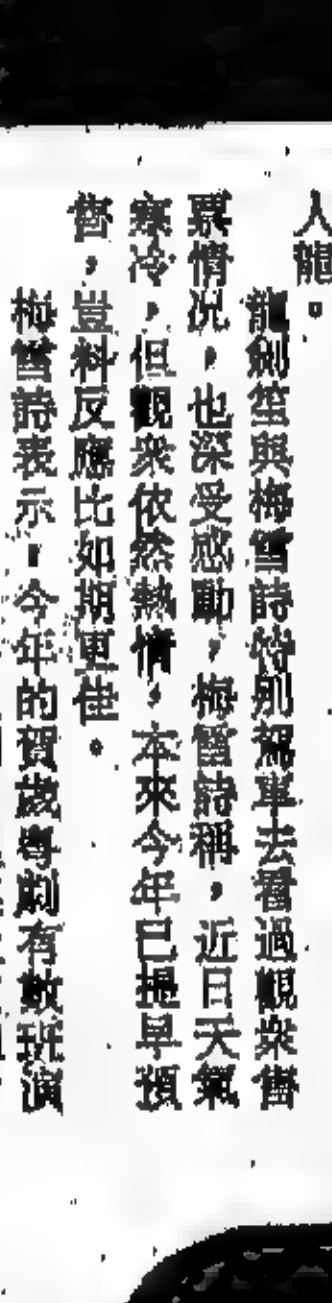 人龍。
龍劍笙與梅雪詩特別駕車去看過觀衆售
票情況，也深受感動，梅雪詩稱，近日天氣
寒冷，但觀衆依然熱情，本來今年已提早預
售，豈料反應比如期更佳。
梅雪詩表示，今年的賀歲粵劇有數班演